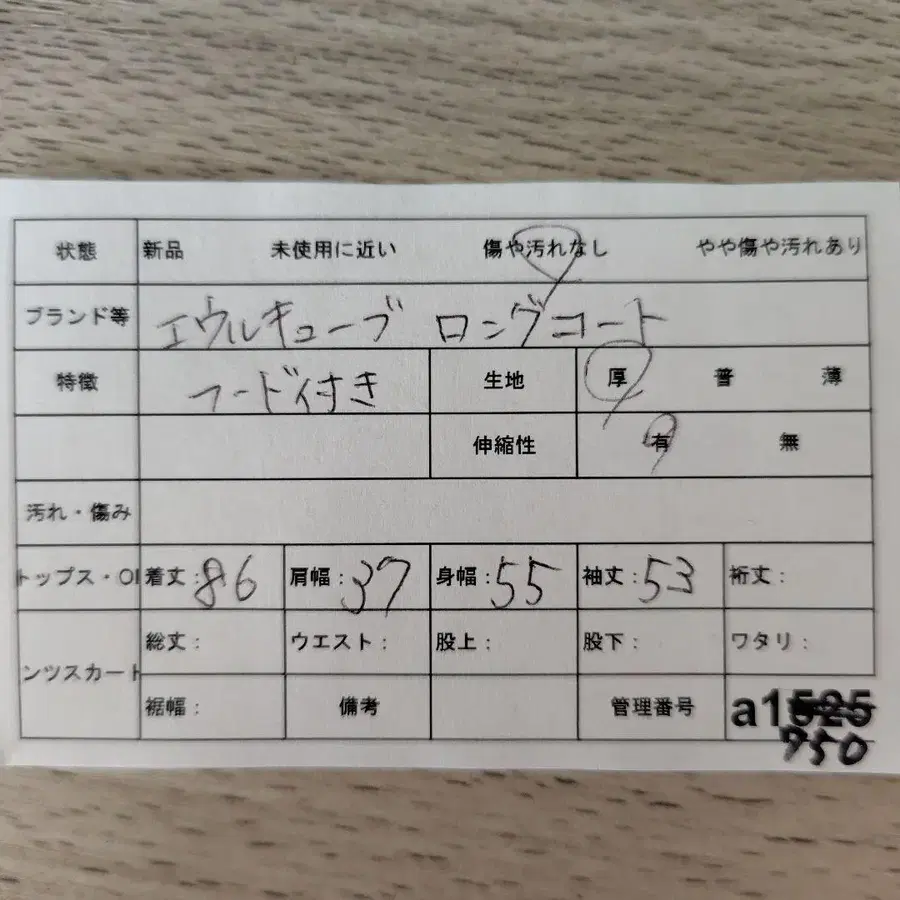 状態 新品 未使用に近い 傷や汚れなし やや傷や汚れあり
ブランド等 エウルキューブ ロングコート
特徴 フード付き 生地 厚 普 薄
伸縮性 有 無
汚れ・傷み
トップス・OP 着丈:86 肩幅:37 身幅:55 袖丈:53 裄丈:
総丈: ウエスト: 股上: 股下: ワタリ:
ンツスカート
裾幅: 備考 管理番号 a1525
950